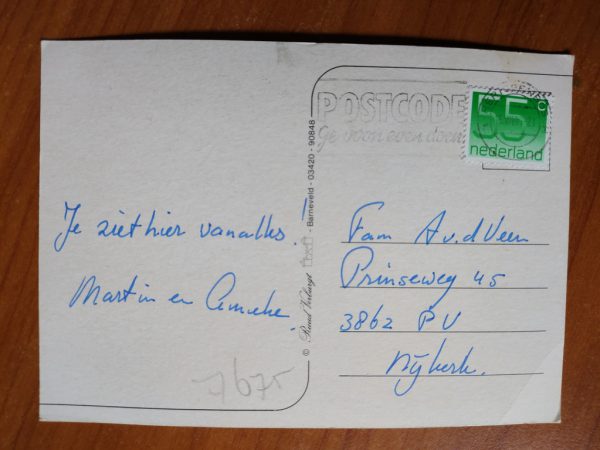 POSTCODE
Gewoon even doen
55 c
nederland
Je ziet hier van alles!
Martin en Anneke.
Fam A v.d Veen
Prinseweg 45
3862 PV
Nijkerk.
© Ruud Verburgt
- Barneveld - 03420 - 90848
7675